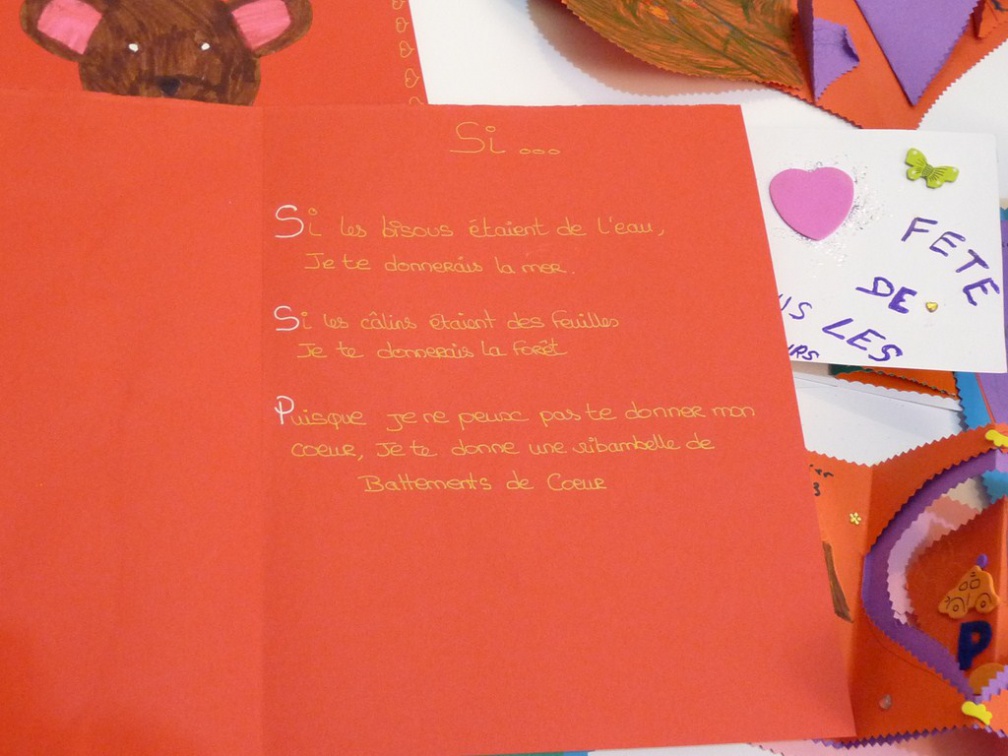 Si...
Si les bisous étaient de l'eau,
Je te donnerais la mer.
Si les câlins étaient des feuilles
Je te donnerais la Forêt
Puisque je ne peux pas te donner mon
coeur, Je te donne une ribambelle de
Battements de Coeur
FETE
DE
LES
P